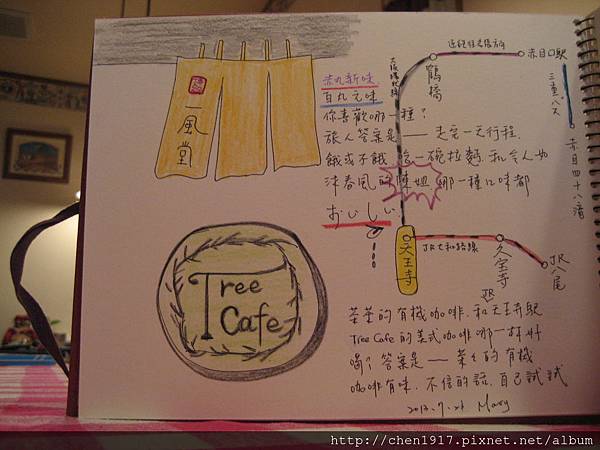 一風堂
赤丸新味
百丸元味
你喜歡哪一種？
旅人答案是——走完一天行程.
餓或不餓 一碗拉麵. 和令人如
沐春風的陳姐 哪一種口味都
おいしい
近鉄
赤目口駅
鶴橋
三重バス
赤目四十八瀧
大阪環状線
天王寺
JR大和路線
久宝寺
JR八尾
Tree
Cafe
的有機咖啡. 和天王寺駅
JR
Tree Cafe的美式咖啡哪一杯好
喝？答案是——的有機
咖啡有味. 不信的話. 自己試試
2013.7.21 Mary
http://chen1917.pixnet.net/album